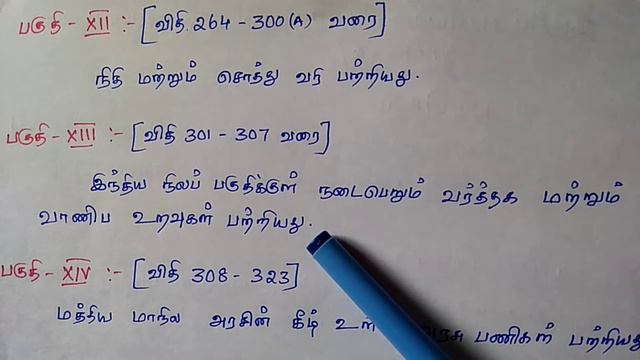 பகுதி - XII :- [விதி 264 - 300(A) வரை]
நிதி மற்றும் சொத்து வரி பற்றியது.
பகுதி - XIII :- [விதி 301 - 307 வரை]
இந்திய நிலப் பகுதிக்குள் நடைபெறும் வர்த்தக மற்றும்
வாணிப உறவுகள் பற்றியது.
பகுதி - XIV :- [விதி 308 - 323]
மத்திய மாநில அரசின் கீழ் அரசு பணிகள் பற்றியது